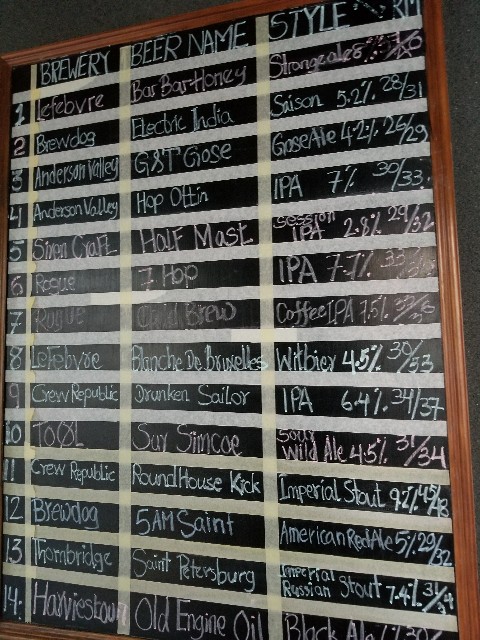 BREWERY BEER NAME STYLE RM
1 Lefebvre Bar Bar-Honey Strongale 8%
2 Brewdog Electric India Saison 5.2% 28/31
3 Anderson Valley G&T Gose GoseAle 4.2% 26/29
4 Anderson Valley Hop Ottin IPA 7% 30/33.
5 Siren Craft Half Mast Session IPA 2.8% 29/32
6 Rogue 7 Hop IPA 7.7%
7 Rogue Cold Brew Coffee IPA 7.5%
8 Lefebvre Blanche De Bruxelles Witbier 4.5% 30/33
9 Crew Republic Drunken Sailor IPA 6.4% 34/37
10 TOOL Sur Simcoe Sour Wild Ale 4.5% 31/34
11 Crew Republic RoundHouse Kick Imperial Stout 9.2% 45/48
12 Brewdog 5AM Saint American Red Ale 5% 29/32
13 Thornbridge Saint Petersburg Imperial Russian Stout 7.4% 31/34
14. Harviestoun Old Engine Oil Black Ale